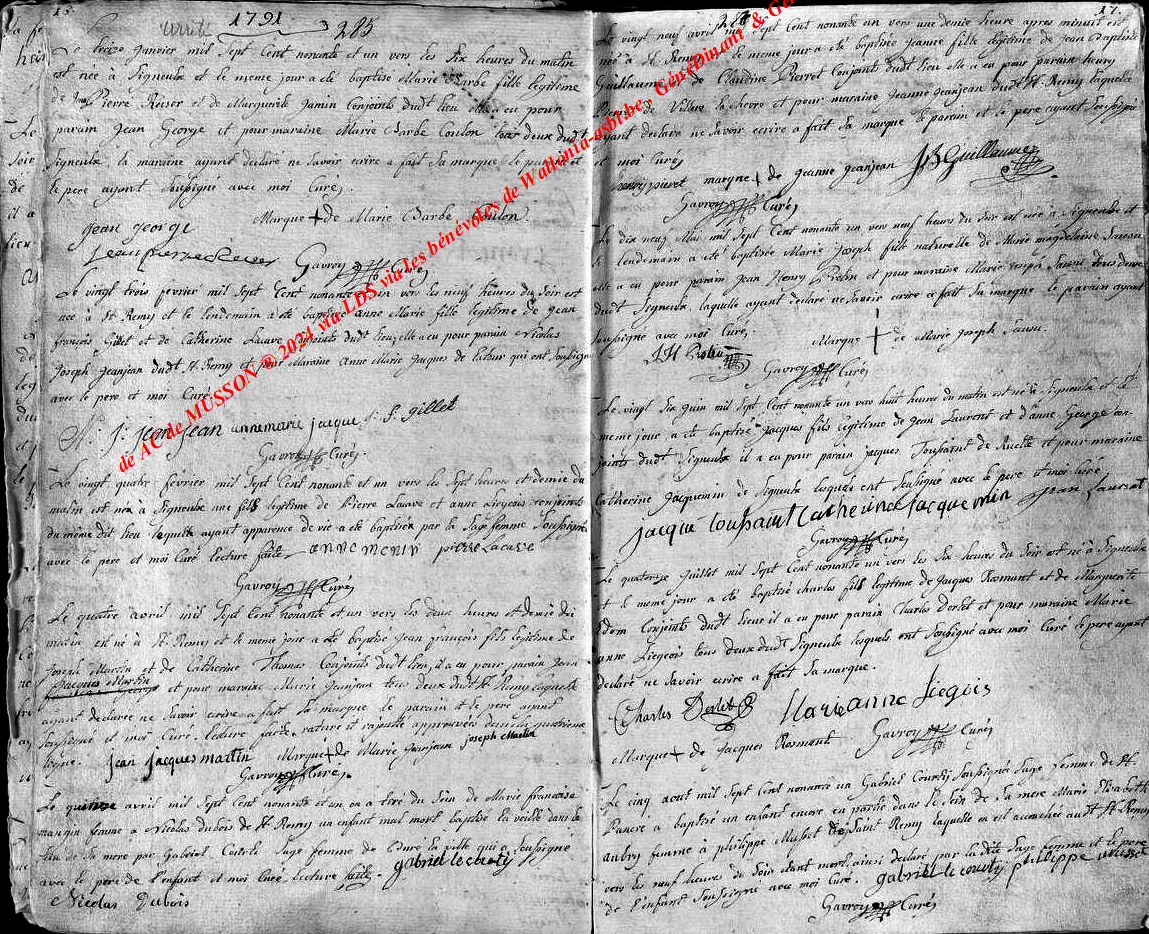 1791.
285
Le treize janvier mil Sept Cent nonante et un vers les Six heures du matin
est née à Signeulx et le meme jour a été baptisé Marie Barbe fille legitime
de Pierre Reiser et de Marguerite Jamin Conjoints dudt lieu elle a eu pour
parain Jean George et pour maraine Marie Barbe Coulon tous deux dudt
Signeulx la maraine ayant declaré ne Savoir ecrire a fait Sa marque le parain et
le pere ayant Soussigné avec moi Curé.
Marque + de Marie Barbe Coulon
jean george
Gavroy Curé
Le vingt trois fevrier mil Sept Cent nonante un vers les neuf heures du Soir est
née à St Remy et le lendemain a été baptisée anne Marie fille legitime de jean
françois Gillet et de Catherine Lacave Conjoints dudt lieu, elle a eu pour parain Nicolas
Joseph Jeanjean dudt St Remy et pour Maraine anne Marie Jaques de latour qui ont Soussigné
avec le pere et moi Curé
N. J. jean jean annemarie jacque J. F. gillet
Gavroy Curé.
Le vingt quatre fevrier mil Sept Cent nonante et un vers les Sept heures et demie du
matin est née à Signeulx une fille legitime de Pierre Lacave et anne Liegeois conjoints
du même dit lieu laquelle ayant apparence de vie a été baptisée par la Sage femme Soussignée
avec le pere et moi Curé lecture faite anne menin pierre Lacave
Gavroy Curé
Le quatre avril mil Sept Cent nonante et un vers les deux heures et demie du
matin est né à St Remy et le meme jour a été baptisé Jean françois fils legitime de
Joseph Martin et de Catherine Thomas Conjoints dudt lieu, il a eu pour parain Jean
Jacques Martin et pour maraine Marie Jeanjean tous deux dudt St Remy laquelle
ayant declarée ne Savoir ecrire a fait Sa marque le parain et le pere ayant
Soussigné et moi Curé. lecture faite, rature et rajoute approuvées
ligne. jean jacques martin Marque + de Marie Jeanjean joseph Martin
Gavroy Curé.
Le quinze avril mil Sept Cent nonante et un on a tiré du Sein de Marie francoise
mangin femme a Nicolas dubois de St Remy un enfant mal mort baptisé la veille dans le
Sein de Sa mere par Gabriel Courty Sage femme de la ville qui a Soussigné
avec le pere de l'enfant et moi Curé lecture faite. gabriel le courty
Nicolas Dubois
17.
Le vingt neuf avril mil Sept Cent nonante un vers une demie heure apres minuit est
née à St Remy et le meme jour a été baptisée Jeanne fille legitime de Jean Baptiste
Guillaume et de Claudine Pierret Conjoints dudt lieu elle a eu pour parain henry
Pierret de Villers la chevre et pour maraine Jeanne Jeanjean dudt St Remy laquelle
ayant declaré ne Savoir ecrire a fait Sa marque le parain et le pere ayant Soussigné
et moi Curé
henry pieret marque + de jeanne jeanjean JB Guillaume
Gavroy Curé
Le dix neuf Mai mil Sept Cent nonante un vers neuf heures du Soir est née à Signeulx et
le lendemain a été baptisée Marie Joseph fille naturelle de Marie magdelaine
elle a eu pour parain Jean Henry et pour maraine Marie Joseph tous deux
dudt Signeulx, laquelle ayant declaré ne Savoir ecrire a fait Sa marque le parain ayant
Soussigné avec moi Curé.
Marque + de Marie Joseph
Gavroy Curé
Le vingt Six Juin mil Sept Cent nonante un vers huit heures du matin est né à Signeulx et le
meme jour a été baptisé Jacques fils legitime de Jean Laurent et d'anne George con-
joints dudt Signeulx il a eu pour parain Jacques Toussaint de Ruette et pour maraine
Catherine Jacquemin de Signeulx lesquels ont Soussigné avec le pere et moi Curé
jacque toussaint Catherine jacquemin jean Laurent
Gavroy Curé
Le quatorze Juillet mil Sept Cent nonante un vers les Six heures du Soir est né à Signeulx
et le meme jour a été baptisé charles fils legitime de Jacques Rosmant et de Marguerite
Edom Conjoints dudt lieu il a eu pour parain Charles Dorlet et pour maraine Marie
anne Liegeois tous deux dudt Signeulx lesquels ont Soussigné avec moi Curé le pere ayant
declaré ne Savoir ecrire a fait Sa marque.
Charles Marie anne
Marque + de Jacques Rosmant Gavroy Curé
Le cinq aout mil Sept Cent nonante un Gabriel Courty Soussignée Sage femme de St
Pancre a baptisé un enfant encore en partie dans le Sein de Sa mere Marie Elisabeth
aubry femme a philippe Musset de Saint Remy laquelle en est accouchée au dt St Remy
vers les neuf heures du Soir etant mort, ainsi declaré par la dte Sage femme et le pere
de l'enfant Soussigné avec moi Curé. gabriel le courty philippe musset
Gavroy Curé
de AC de MUSSON ® 2024 via LDS via Les bénévoles de Wallonia-asbl.be, GénéDinant &